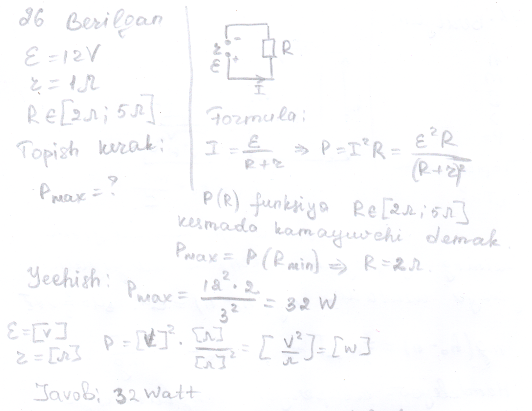 26 Berilgan
ε = 12V
r = 1Ω
R ∈ [2Ω; 5Ω]
Topish kerak:
Pmax = ?
r - R
ε +
I
Formula:
I = ε/(R+r) ⇒ P = I²R = ε²R/(R+r)²
P(R) funksiya R∈[2Ω; 5Ω]
kesmada kamayuvchi demak
Pmax = P(Rmin) ⇒ R = 2Ω
Yechish: Pmax = 12²·2/3² = 32 W
ε = [V]
r = [Ω]
P = [V]² · [Ω]/[Ω]² = [V²/Ω] = [W]
Javobi; 32 Watt